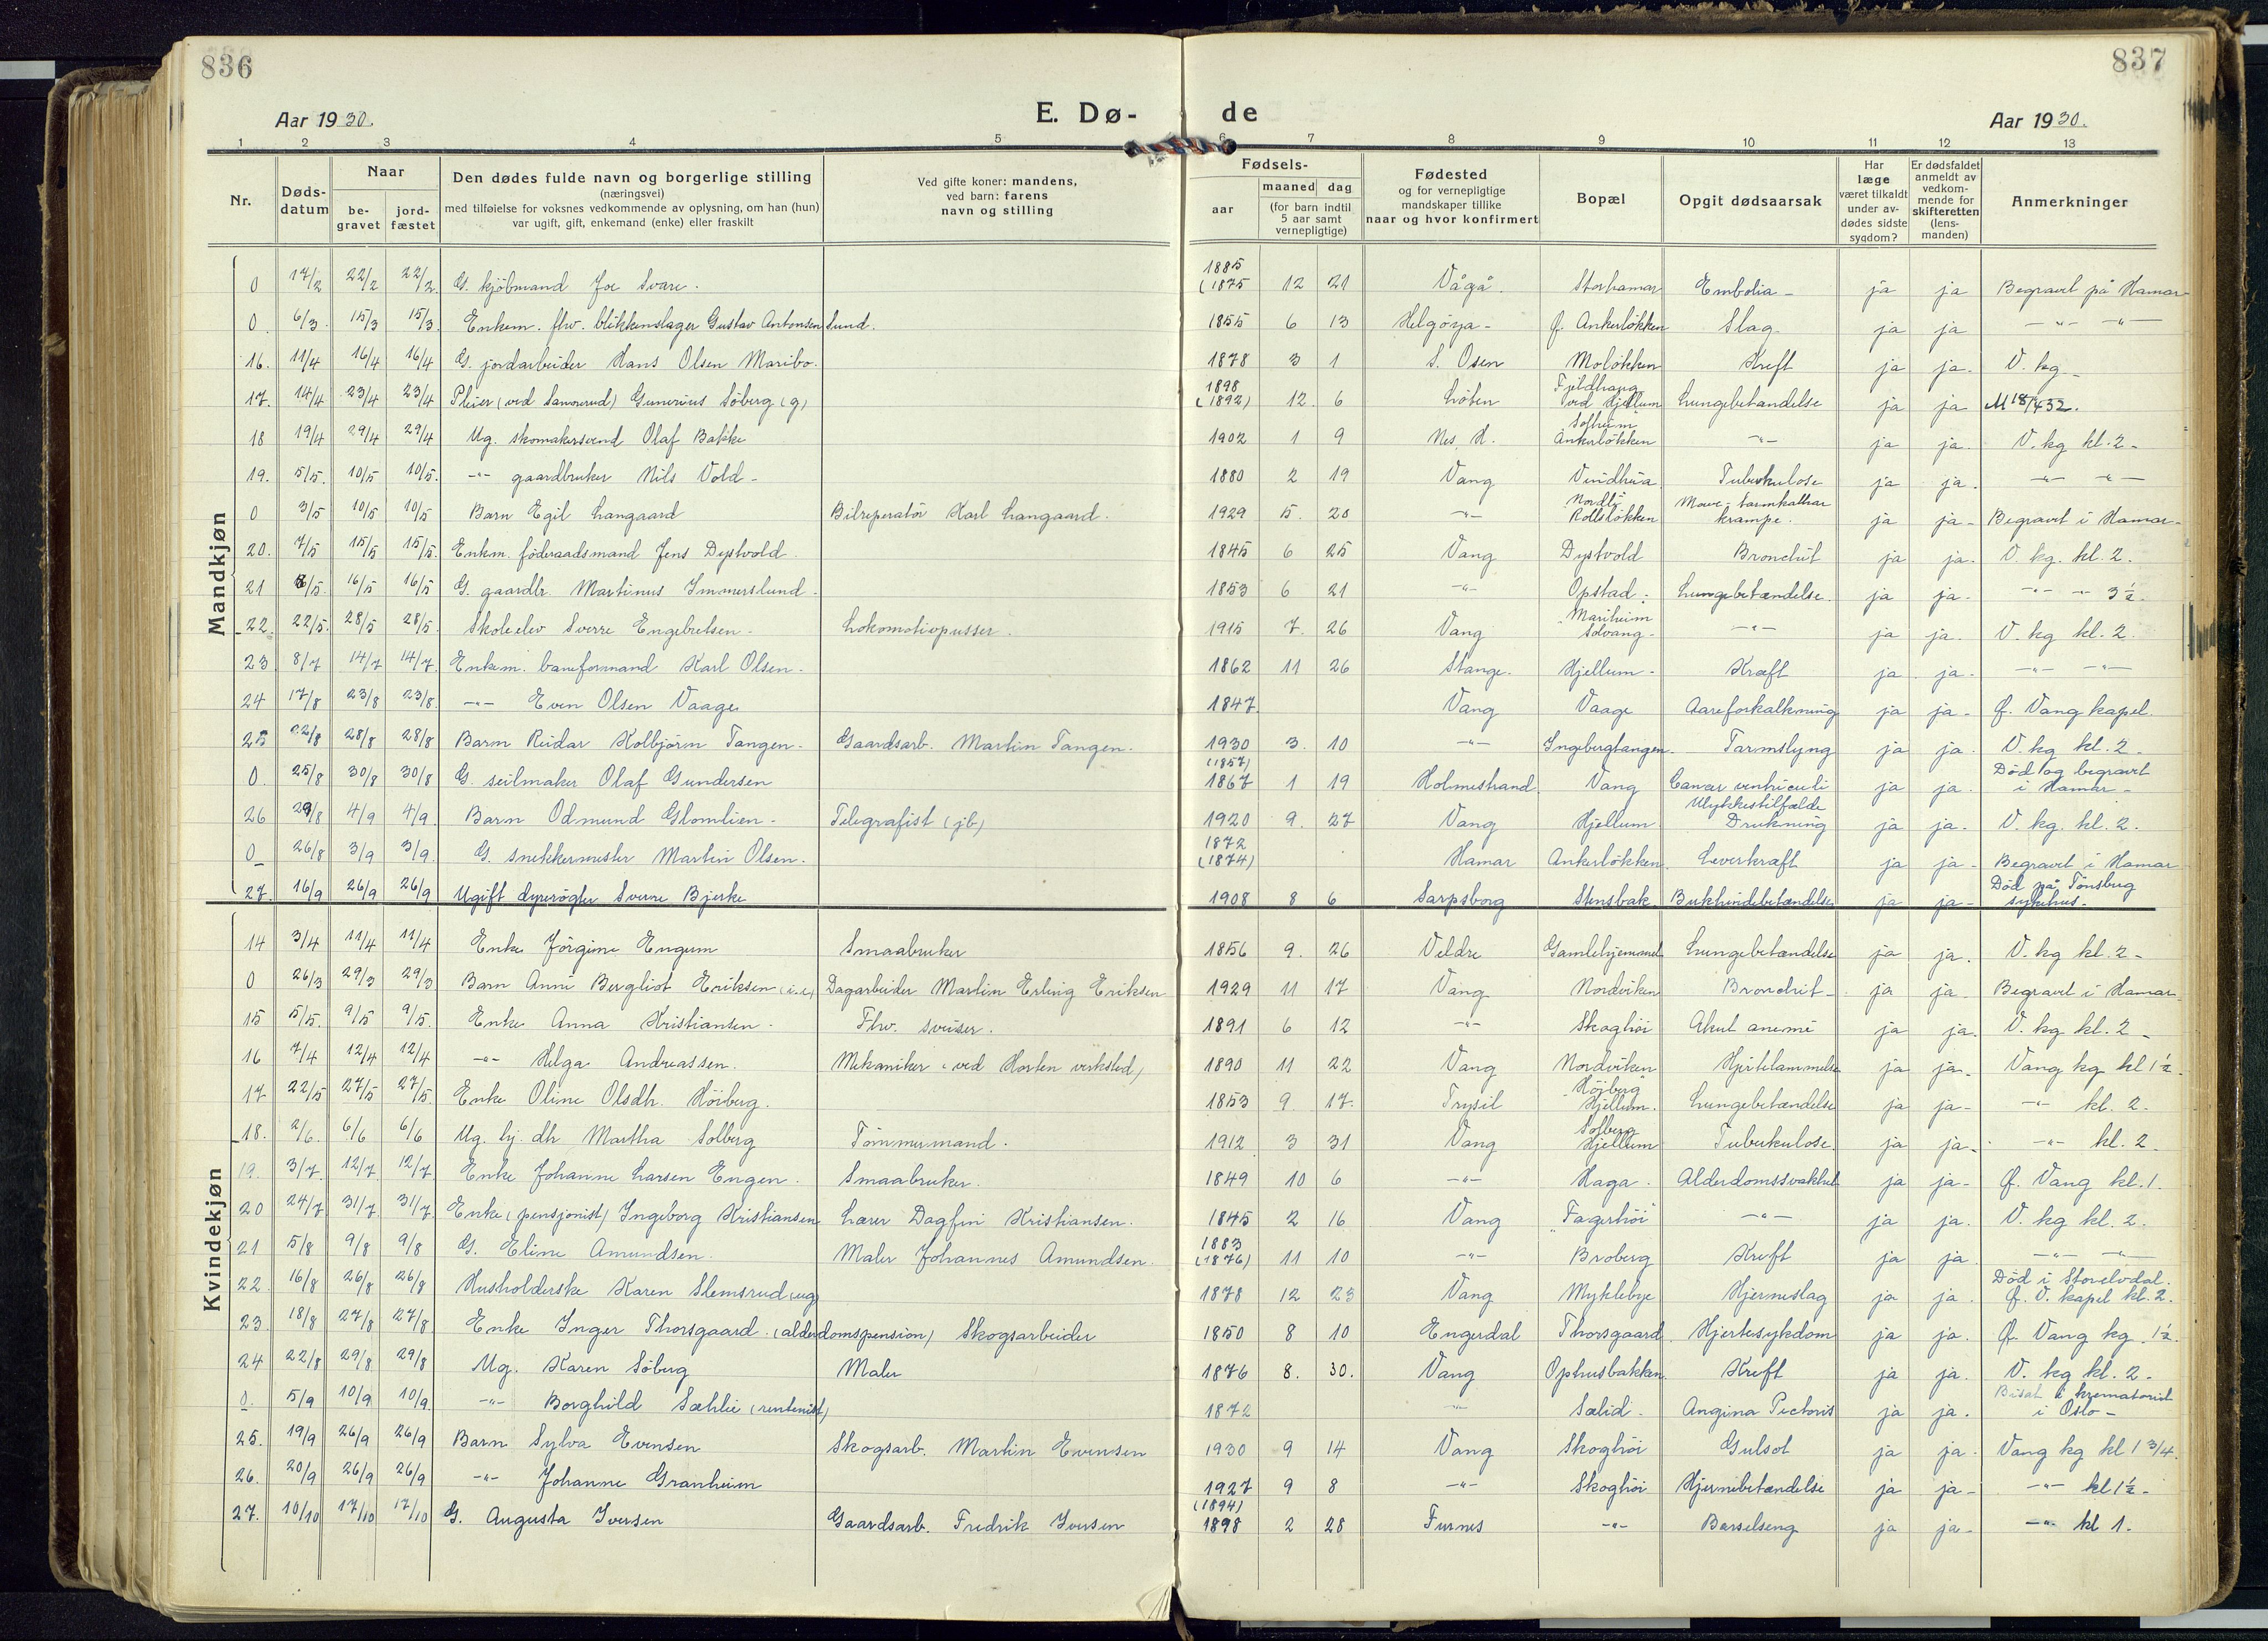 836
837
Aar 1930.
E. Dø-
de
Aar 1930.
1 2 3 4 5 6 7 8 9 10 11 12 13
Nr.
Døds-
datum
Naar
be-
gravet
jord-
fæstet
Den dødes fulde navn og borgerlige stilling
(næringsvei)
med tilføielse for voksnes vedkommende av oplysning, om han (hun)
var ugift, gift, enkemand (enke) eller fraskilt
Ved gifte koner: mandens,
ved barn: farens
navn og stilling
Fødsels-
aar
maaned dag
(for barn indtil
5 aar samt
vernepligtige)
Fødested
og for vernepligtige
mandskaper tillike
naar og hvor konfirmert
Bopæl
Opgit dødsaarsak
Har
læge
været tilkaldt
under av-
dødes sidste
sygdom?
Er dødsfaldet
anmeldt av
vedkom-
mende for
skifteretten
(lens-
manden)
Anmerkninger
Mandkjøn
0 17/2 22/2 22/2 G. kjöbmand Joe Svare. 1885 (1875 12 21 Vågå. Storhamar Embolia - ja ja Begravet på Hamar
0. 6/3 15/3 15/3 Enkem. fhv. blikkenslager Gustav Antonsen Lund. 1855 6 13 Helgöya - f. Ankerlökken Slag. ja ja -"- -"-
16. 11/4 16/4 16/4 G. jordarbeider Hans Olsen Maribo. 1878 3 1 S. Osen Molökken Kreft ja ja. V. kg -
17. 14/4 23/4 23/4 Pleier (ved Sanderud) Gunerius Söberg (g) 1898 (1892) 12. 6 Löten Fjeldhaug ved Hjellum Lungebetændelse ja ja M 18/432.
18 19/4 29/4 29/4 Ug. skomakersvend Olaf Bakke 1902 1 9 Nes, H. Solheim Ankerlökken -"- ja ja. V. kg kl. 2 -
19. 5/5. 10/5 10/5. -"- gaardbruker Nils Vold - 1880 2 19 Vang Vindhia Tuberkulose ja ja. -"- -"-
0 3/5 10/5 10/5 Barn Egil Langaard Bilreperatör Karl Langaard. 1929 5. 20 -"- Nordli Rollslökken Mave-tarmkattar krampe. ja ja - Begravet i Hamar -
20. 7/5 15/5 15/5. Enkm. föderaadsmand Jens Dystvold. 1845 6 25 Vang Dystvold Bronchit ja ja. V. kg. kl. 2.
21 8/5. 16/5 16/5 G. gaardbr. Martinus Immerslund. 1853 6 21 -"- Opstad. Lungebetændelse. ja ja. -"- -"- 3½.
22. 22/5. 28/5 28/5. Skoleelev Sverre Engebretsen. Lokomotivpusser. 1915 7. 26 Vang Mariheim Solvang. -"- ja ja. V. kg kl. 2.
23. 8/7 14/7 14/7. Enkem. baneformand Karl Olsen. 1862 11 26 Stange. Hjellum. Kræft ja ja. -"- -"-
24 17/8 23/8 23/8. -"- Even Olsen Vaage 1847. Vang Vaage Aareforkalkning ja ja - f. Vang kapel.
25 22/8 28/8 28/8 Barn Reidar Kolbjörn Tangen. Gaardsarb. Martin Tangen. 1930 3. 10 -"- Ingebergtangen. Tarmslyng ja ja. V. kg kl. 2 -
0. 25/8 30/8 30/8 G. seilmaker Olaf Gundersen (1857) 1867 1 19 Holmestrand. Vang Cancer ventriculi ja ja. Död og begravet i Hamar -
26 29/8 4/9 4/9. Barn Odmund Glomlien. Telegrafist (jb) 1920 9. 27 Vang Hjellum Ulykkestilfælde Drukning ja ja. V. kg. kl. 2.
0 26/8 3/9 3/9. G. snekkermester Martin Olsen. 1872 (1874) Hamar Ankerlökken Leverkræft ja ja - Begravet i Hamar
27. 16/9 26/9 26/9 Ugift dyrerögter Sverre Bjerke 1908 8 6 Sarpsborg Stensbak. Bukhindebetændelse ja ja - Död på Tönsberg sykehus.
Kvindekjøn
14 3/4 11/4 11/4 Enke Jörgine Engum Smaabruker 1856 9. 26 Veldre Gamlehjemmet Lungebetændelse ja ja. V. kg kl. 2 -
0 26/3 29/3 29/3 Barn Anni Bergliot Eriksen (i.e) Dagarbeider Martin Erling Eriksen 1929 11 17 Vang Nordviken Bronchit - ja ja - Begravet i Hamar
15 5/5. 9/5 9/5. Enke Anna Kristiansen. Fhv. sveiser. 1891 6 12 -"- Skoghöi Akut anemi ja ja. V. kg kl. 2 -
16 7/4 12/4 12/4 -"- Helga Andreassen. Mekaniker (ved Horten verksted) 1890 11 22 Vang Nordviken Hjertelammelse ja ja. Vang kg kl 1½.
17 22/5 27/5 27/5. Enke Oline Olsdtr. Höiberg. 1853 9. 17. Trysil "Höjberg" Hjellum. Lungebetændelse ja ja - -"- kl. 2.
18. 2/6. 6/6 6/6 Ug. hj. dtr Martha Solberg Tömmermand. 1912 3 31 Vang Solberg Hjellum Tuberkulose. ja ja - -"- kl. 2
19. 3/7 12/7 12/7. Enke Johanne Larsen Engen. Smaabruker. 1849 10 6 -"- Haga. Alderdomssvakhet ja ja - f. Vang kl. 1.
20 24/7 31/7 31/7. Enke (pensjonist) Ingeborg Kristiansen Lærer Dagfin Kristiansen. 1845 2 16 Vang "Fagerhöi" -"- ja ja. V. kg kl. 2.
21 5/8 9/8 9/8 G. Eline Amundsen. Maler Johannes Amundsen. 1883 (1876) 11 10 -"- Broberg Kreft ja ja -"- -"-
22. 16/8 26/8 26/8 Husholderske Karen Slemsrud (ug) 1878 12 23 Vang Myklebye Hjerneslag ja ja. Död i Storelvdal. f. V. kapel kl. 2.
23. 18/8 27/8 27/8 Enke Inger Thorsgaard. (alderdomspension) Skogsarbeider 1850 8 10 Engerdal Thorsgaard Hjertesykdom ja ja. f. Vang kg. 1½.
24 22/8 29/8 29/8 Ug. Karen Söberg Maler 1876 8. 30. Vang Ophusbakken. Kreft ja ja. V. kg kl. 2 -
0. 5/9 10/9 10/9 -"- Borghild Sæhlie (rentenist) 1872 -"- Sælid. Angina Pectoris ja ja. Bisat i krematoriet i Oslo -
25. 19/9 26/9 26/9 Barn Sylva Evensen Skogsarb. Martin Evensen 1930 9 14 Vang Skoghöi Gulsot ja ja. Vang kg kl 1 3/4.
26. 20/9 26/9 26/9 -"- Johanne Granheim 1927 9 8 -"- Skoghöi Hjernebetændelse ja ja - -"- kl 1½ -
27. 10/10 17/10 17/10 G. Augusta Iversen Gaardsarb. Fredrik Iversen (1894) 1898 2 28 Furnes -"- Barselseng ja ja - -"- kl 1.